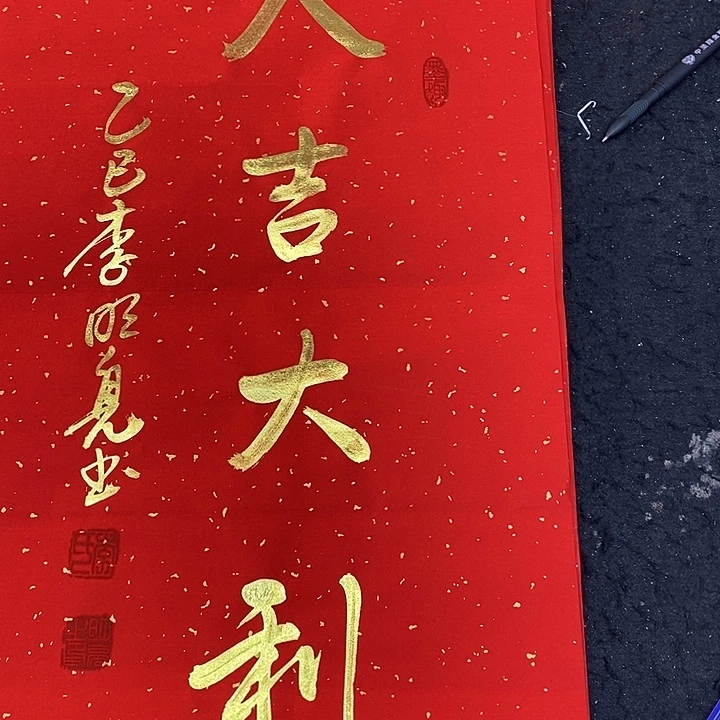 大吉大利
乙巳李明見书